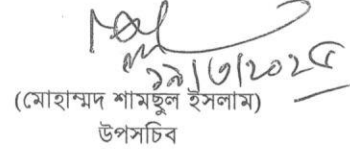 ১৯/৩/২০২৫
(মোহাম্মদ শামছুল ইসলাম)
উপসচিব